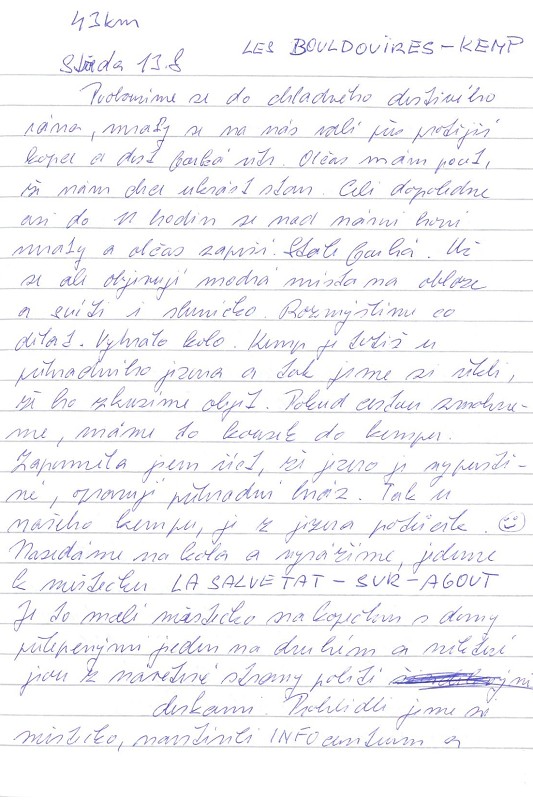 43km
LES BOULDOUIRES – KEMP
Středa 13.8
Probouzíme se do chladného deštivého
rána, mraky se na nás valí přes protější
kopec a dost fouká vítr. Občas mám pocit,
že nám chce ukrást stan. Celé dopoledne
asi do 11 hodin se nad námi honí
mraky a občas zaprší. Stále fouká. Už
se ale objevují modrá místa na obloze
a svítí i sluníčko. Rozmýšlíme co
dělat. Vyhrálo kolo. Kemp je totiž u
přehradního jezera a tak jsme si řekli,
že ho zkusíme objet. Pokud cestou zmokne-
me, máme to kousek do kempu.
Zapomněla jsem říct, že jezero je vypuště-
né, opravují přehradní hráz. Tak u
našeho kempu, je z jezera potůček. ☺
Nasedáme na kola a vyrážíme, jedeme
k městečku LA SALVETAT – SUR – AGOUT
Je to malé městečko na kopečku s domy
přilepenými jeden na druhém a některé
jsou z návětrné strany pobití
deskami. Prohlédli jsme si
městečko, navštívili INFOcentrum a